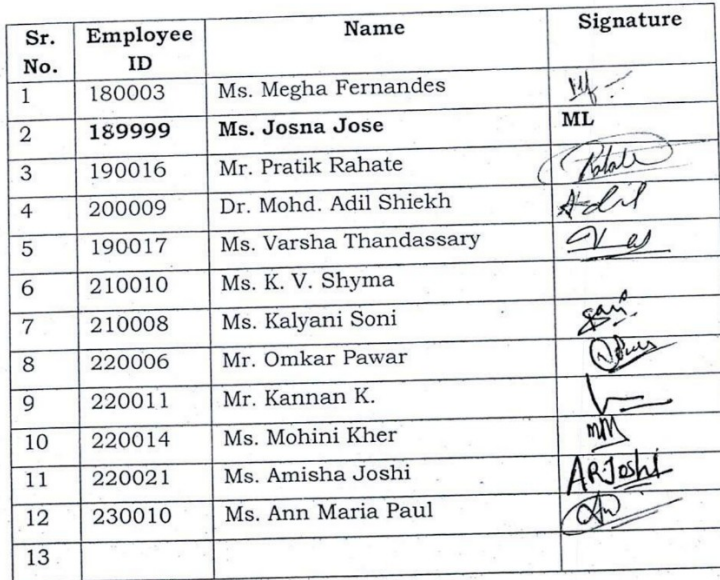 Sr. No. Employee ID Name Signature
1 180003 Ms. Megha Fernandes
2 189999 Ms. Josna Jose ML
3 190016 Mr. Pratik Rahate
4 200009 Dr. Mohd. Adil Shiekh Adil
5 190017 Ms. Varsha Thandassary
6 210010 Ms. K. V. Shyma
7 210008 Ms. Kalyani Soni
8 220006 Mr. Omkar Pawar
9 220011 Mr. Kannan K.
10 220014 Ms. Mohini Kher
11 220021 Ms. Amisha Joshi ARJoshi
12 230010 Ms. Ann Maria Paul
13